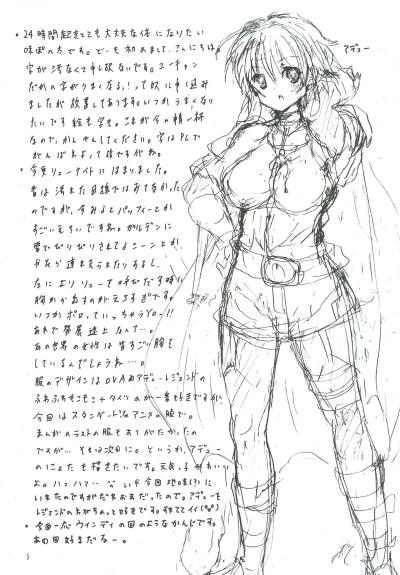 ・24時間起きてても大丈夫な体になりたい
味ぽの方です。どーも初めまして、こんにちは。
字が汚なくて申し訳ないです。ユーキャン
だかの字がうまくなる!って奴に申し込み
ましたが放置してあります。いつかうまくなり
たいです絵も字も。これが今の精一杯
なので、かんべんしてください。字はPCで
がんばれよって話ですがね。
・今更リューナイトにはまりました。
昔は汚れた目線ではみてなかった
のですが、今みるとパッフィーとか
すごいえろいですね。ガルデンに
雷でびりびりされてるシーンとか
やたら連れ去られたりするし、
なによりリューって呼びだす時に
胸から出すのがえろすぎです。
いつかポロっていっちゃうYO-!!
あれで発展途上なんて…。
あの世界の女性は皆すごい胸を
しているんでしょうね…。
服のデザインはOVAのアデューレジェンドの
ふわふわもこもこ+タイツのが一番好きですが、
今回はスタンダードなアニメの服で。
まんがのラストの服もおてがたかったの
ですが…それは次回に。というか、アデュー
のにょたも描きたいです。元気っ子かわいい
よ。ハァハァ…
レジェンドの方がちょっと好きです。
・今回一応ウインディの回のようなかんじです。
あの回好きだなー。
アデュー
アデュー
3